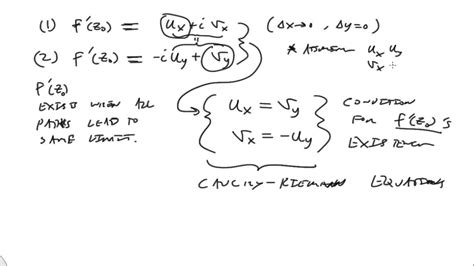 (1) f'(z₀) = uₓ + i vₓ (Δx→0, Δy=0)
(2) f'(z₀) = -i u_y + v_y
* Assume uₓ u_y
vₓ
f'(z₀)
EXIST WHEN ALL
PATHS LEAD TO
SAME LIMIT.
uₓ = v_y
vₓ = -u_y
CONDITION
FOR f'(z₀)'s
EXISTENCE
CAUCHY-RIEMANN EQUATIONS